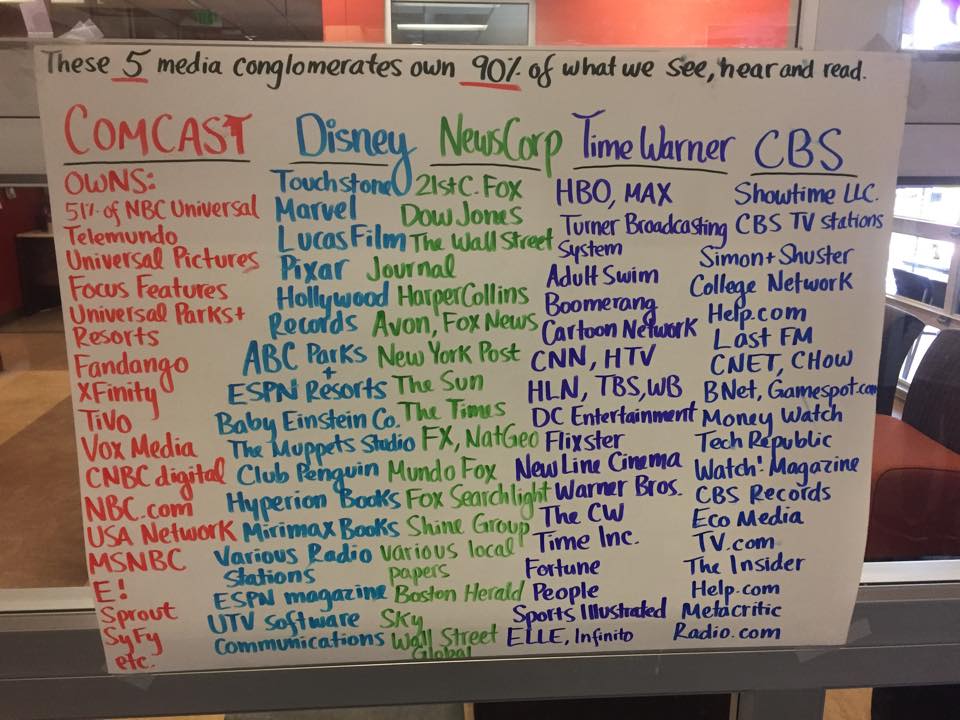 These 5 media conglomerates own 90% of what we see, hear and read.
COMCAST
OWNS:
51% of NBC Universal
Telemundo
Universal Pictures
Focus Features
Universal Parks+
Resorts
Fandango
XFinity
TiVo
Vox Media
CNBC digital
NBC.com
USA Network
MSNBC
E!
Sprout
SyFy
etc.
Disney
Touchstone
Marvel
LucasFilm
Pixar
Hollywood
Records
ABC Parks
+
ESPN Resorts
Baby Einstein Co.
The Muppets Studio
Club Penguin
Hyperion Books
Mirimax Books
Various Radio
Stations
ESPN magazine
UTV Software
Communications
NewsCorp
21stC. Fox
Dow Jones
The Wall Street
Journal
HarperCollins
Avon, Fox News
New York Post
The Sun
The Times
FX, NatGeo
Mundo Fox
Fox Searchlight
Shine Group
various local
papers
Boston Herald
Sky
Wall Street
Global
Time Warner
HBO, MAX
Turner Broadcasting
System
Adult Swim
Boomerang
Cartoon Network
CNN, HTV
HLN, TBS, WB
DC Entertainment
Flixster
New Line Cinema
Warner Bros.
The CW
Time Inc.
Fortune
People
Sports Illustrated
ELLE, Infinito
CBS
Showtime LLC.
CBS TV stations
Simon + Shuster
College Network
Help.com
Last FM
CNET, CHOW
BNet, Gamespot.com
Money Watch
Tech Republic
Watch! Magazine
CBS Records
Eco Media
TV.com
The Insider
Help.com
Metacritic
Radio.com